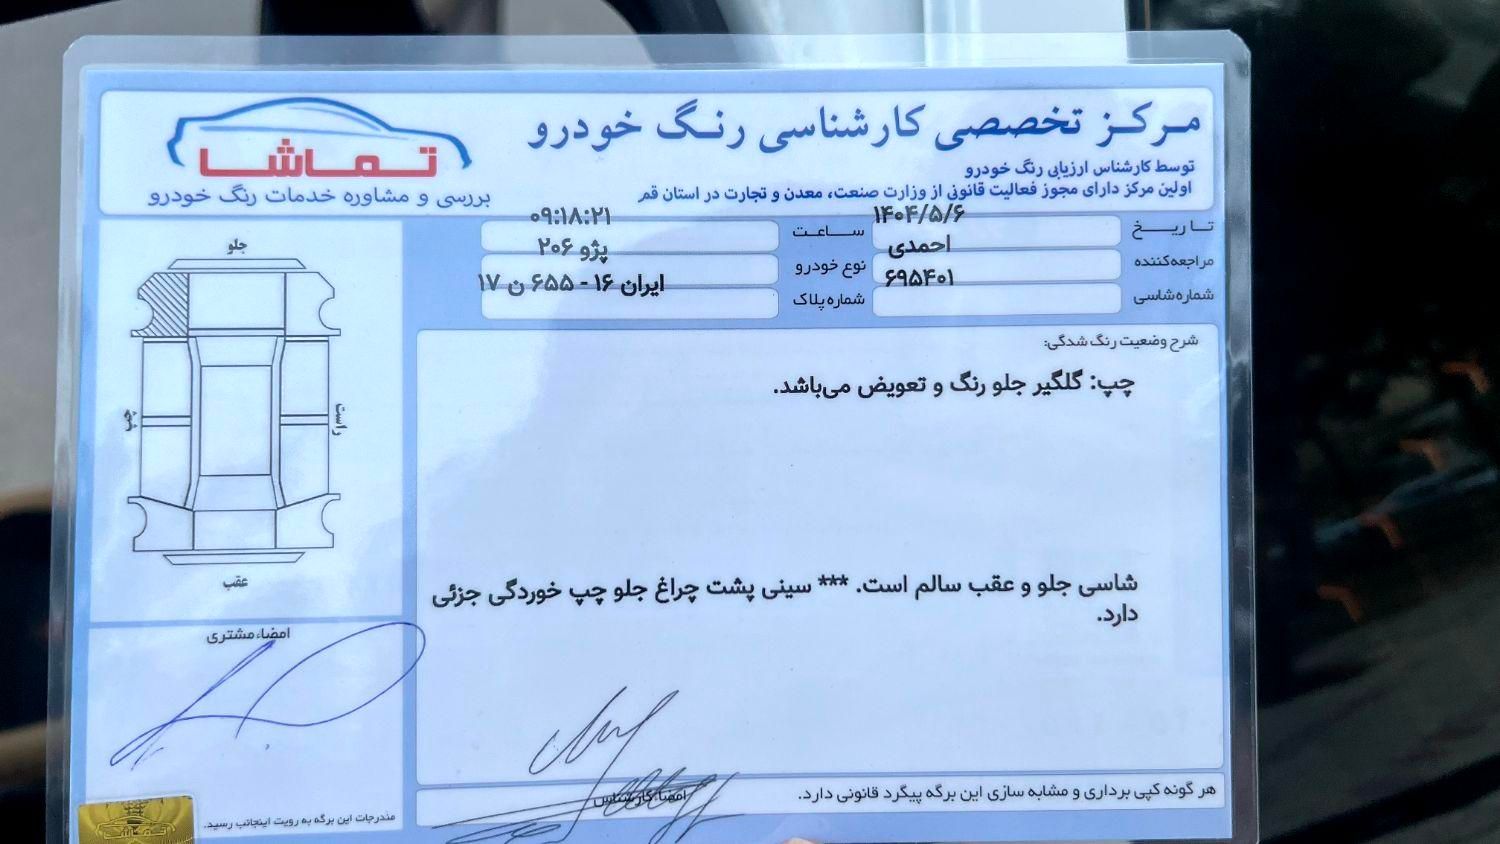 مرکز تخصصی کارشناسی رنگ خودرو
توسط کارشناس ارزیابی رنگ خودرو
اولین مرکز دارای مجوز فعالیت قانونی از وزارت صنعت، معدن و تجارت در استان قم
تماشا
بررسی و مشاوره خدمات رنگ خودرو
تاریخ ۱۴۰۴/۵/۶
ساعت ۰۹:۱۸:۲۱
مراجعه‌کننده احمدی
نوع خودرو پژو ۲۰۶
شماره شاسی ۶۹۵۴۰۱
شماره پلاک ایران ۱۶ - ۶۵۵ ن ۱۷
شرح وضعیت رنگ شدگی:
چپ: گلگیر جلو رنگ و تعویض می‌باشد.
شاسی جلو و عقب سالم است. *** سینی پشت چراغ جلو چپ خوردگی جزئی
دارد.
جلو
راست
چپ
عقب
امضاء مشتری
مندرجات این برگه به رویت اینجانب رسید.
امضاء کارشناس
هر گونه کپی برداری و مشابه سازی این برگه پیگرد قانونی دارد.
تماشا